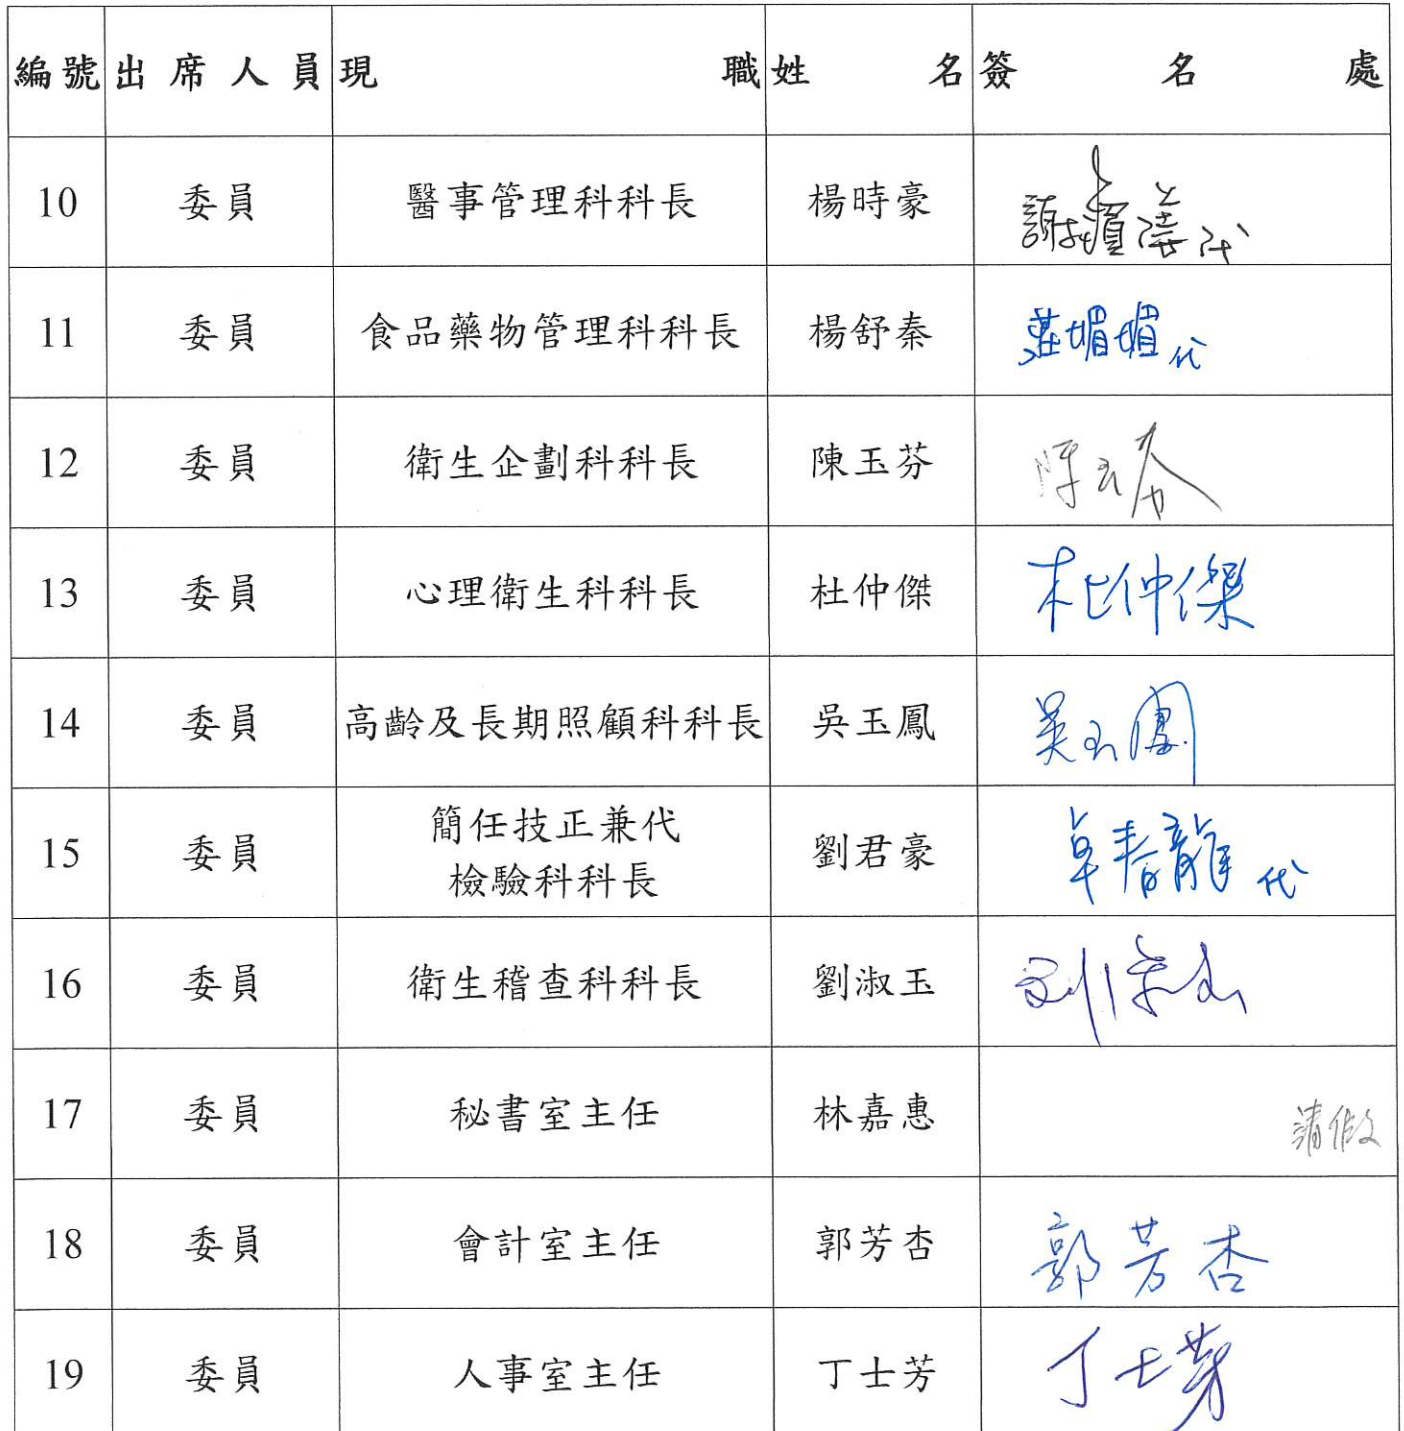 編號 出席人員 現職 姓名 簽名處
10 委員 醫事管理科科長 楊時豪 代
11 委員 食品藥物管理科科長 楊舒秦 莊媚媚代
12 委員 衛生企劃科科長 陳玉芬 陳玉芬
13 委員 心理衛生科科長 杜仲傑 杜仲傑
14 委員 高齡及長期照顧科科長 吳玉鳳 吳玉鳳
15 委員 簡任技正兼代 劉君豪 卓春龍代
檢驗科科長
16 委員 衛生稽查科科長 劉淑玉 劉淑玉
17 委員 秘書室主任 林嘉惠 請假
18 委員 會計室主任 郭芳杏 郭芳杏
19 委員 人事室主任 丁士芳 丁士芳